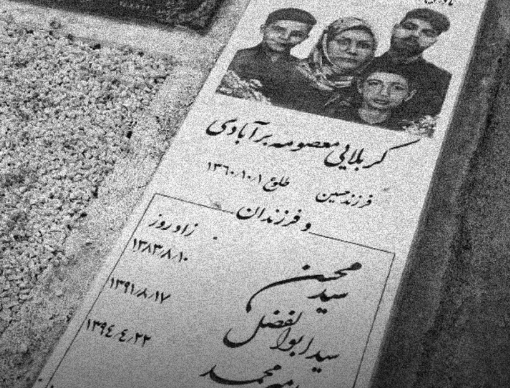 کربلایی معصومه برآبادی
فرزند حسین طلوع ۱۳۶۰/۱۰/۱
و فرزندان
زادروز
سید محسن ۱۳۸۳/۸/۱۰
سید ابوالفضل ۱۳۹۱/۸/۱۷
محمد ۱۳۹۴/۴/۲۲